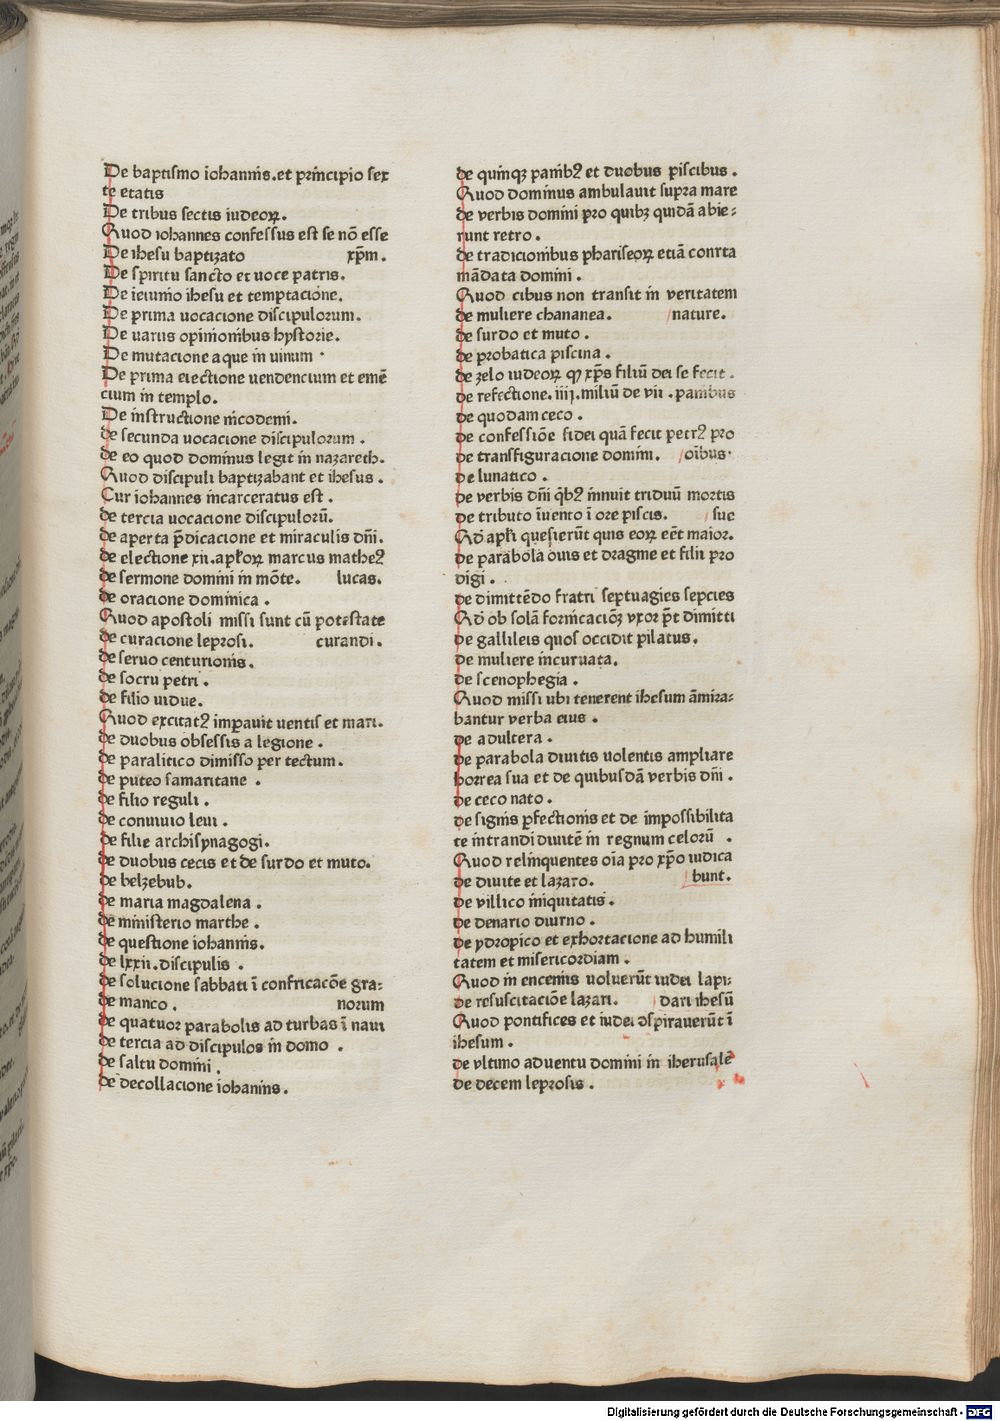 De baptismo iohannis.et principio sex
te etatis
De tribus sectis iudeoꝝ.
Quod iohannes confessus est se nō esse
De ihesu baptizato xp̄m.
De spiritu sancto et uoce patris.
De ieiunio ihesu et temptacione.
De prima uocacione discipulorum.
De uariis opinionibus hystorie.
De mutacione aque in uinum .
De prima eiectione uendencium et emē
cium in templo.
De instructione nicodemi.
de secunda uocacione discipulorum .
de eo quod dominus legit in nazareth.
Quod discipuli baptizabant et ihesus .
Cur iohannes incarceratus est .
de tercia uocacione discipulorū.
de aperta p̄dicacione et miraculis dn̄i.
de electione xii.apl̄oꝝ marcus matheꝰ
de sermone domini in mōte. lucas.
de oracione dominica .
Quod apostoli missi sunt cū potestate
de curacione leprosi. curandi.
de seruo centurionis.
de socru petri .
de filio uidue.
Quod excitatꝰ imperauit uentis et mari.
de duobus obsessis a legione .
de paralitico dimisso per tectum.
de puteo samaritane .
de filio reguli .
de conuiuio leui .
de filie archisynagogi.
de duobus cecis et de surdo et muto.
de belzebub.
de maria magdalena .
de ministerio marthe .
de questione iohannis.
de lxxii.discipulis .
de solucione sabbati ī confricacōe gra:
de manco . norum
de quatuor parabolis ad turbas ī naui
de tercia ad discipulos in domo .
de saltu domini .
de decollacione iohannis.
de quinqꝫ panibꝰ et duobus piscibus .
Quod dominus ambulauit supra mare
de verbis domini pro quibꝫ quidā abie:
runt retro .
de tradicionibus phariseoꝝ etiā contra
mādata domini .
Quod cibus non transit in veritatem
de muliere chananea. /nature.
de surdo et muto .
de probatica piscina .
de zelo iudeoꝝ ꝙ xp̄s filiū dei se fecit .
de refectione.iiij.miliū de vii .panibus
de quodam ceco .
de confessiōe fidei quā fecit petrꝰ pro
de transfiguracione domini. /oībus.
de lunatico .
de verbis dn̄i q̄bꝰ innuit triduū mortis
de tributo īuento ī ore piscis. /sue
Qd̄ apl̄i quesierūt quis eoꝝ eēt maior.
de parabola ouis et dragme et filii pro
digi .
de dimittēdo fratri septuagies sepcies
Qd̄ ob solā fornicacioēꝫ vxor p̄t dimitti
de gallileis quos occidit pilatus.
de muliere incuruata.
de scenophegia .
Quod missi ubi tenerent ihesum āmira:
bantur verba eius .
de adultera .
de parabola diuitis uolentis ampliare
horrea sua et de quibusdā verbis dn̄i .
de ceco nato .
de signis ꝑfectionis et de impossibilita
te intrandi diuitē in regnum celorū .
Quod relinquentes oīa pro xp̄o iudica
de diuite et lazaro. bunt.
de villico iniquitatis .
de denario diurno .
de ydropico et exhortacione ad humili
tatem et misericordiam .
Quod in encenis voluerūt iudei lapi:
de resuscitaciōe lazari. dari ihesū
Quod pontifices et iudei ꝯspirauerūt ī
ihesum .
de vltimo aduentu domini in iherusalē
de decem leprosis .
Digitalisierung gefördert durch die Deutsche Forschungsgemeinschaft - DFG